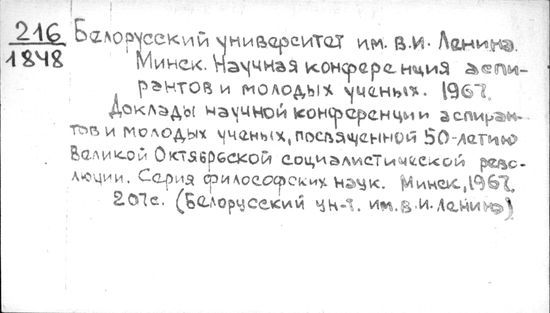 216 Белорусский университет им. В.И. Ленина.
1848 Минск. Научная конференция аспи-
рантов и молодых ученых. 1967.
Доклады научной конференции аспиран-
тов и молодых ученых, посвященной 50-летию
Великой Октябрьской социалистической рево-
люции. Серия философских наук. Минск, 1967.
207с. (Белорусский ун-т. им. В.И. Ленина)